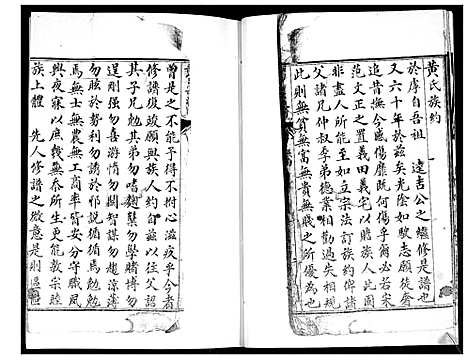 黃氏族約
於虖自吾祖 遠吉公之繼修是譜也
又六十年於茲矣光陰如駛志願徒奢
追昔撫今感傷靡既何傷乎爾必若宋
范文正之置義田義宅以贍族人此固
非盡人所能至如立宗法訂族約俾諸
父諸兄仲叔季弟德業相勸過失相規
此則無貧無富無貴無賤之所優為也
曾是之不能予得不拊心滋疚乎今者
修譜垵竣願與族人約自茲以往父詔
其子兄勉其弟勿嗜麴糵勿學賭博勿
逞剛强勿喜游惰勿鬬智謀勿趨涼薄
勿眩於勢利勿誘於邪說循循焉勉勉
焉無士無農無工商皆安分守職夙
興夜寐以庶幾無忝所生更能敦宗睦
族上體 先人修譜之微意是則區區